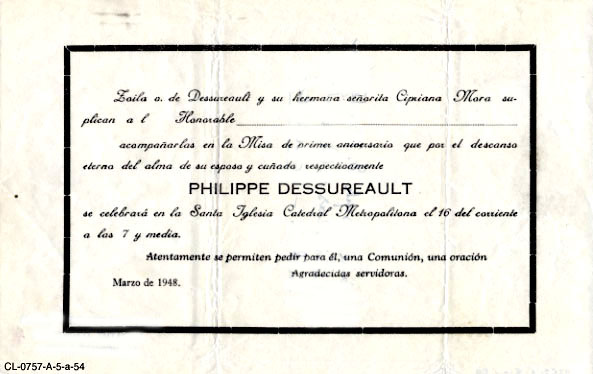 Zoila o. de Dessureault y su hermana señorita Cipriana Mora su-
plican a l Honorable
acompañarlas en la Misa de primer aniversario que por el descanso
eterno del alma de su esposo y cuñado respectivamente
PHILIPPE DESSUREAULT
se celebrará en la Santa Iglesia Catedral Metropolitana el 16 del corriente
a las 7 y media.
Atentamente se permiten pedir para él, una Comunión, una oración
Agradecidas servidoras.
Marzo de 1948.
CL-0757-A-5-a-54